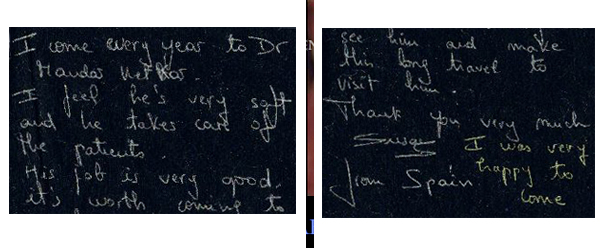 I come every year to Dr
Mandar Netkar.
I feel he's very soft
and he takes care of
the patients.
His job is very good.
it's worth coming to
see him and make
this long travel to
visit him.
Thank you very much
I was very
happy to
come
from Spain